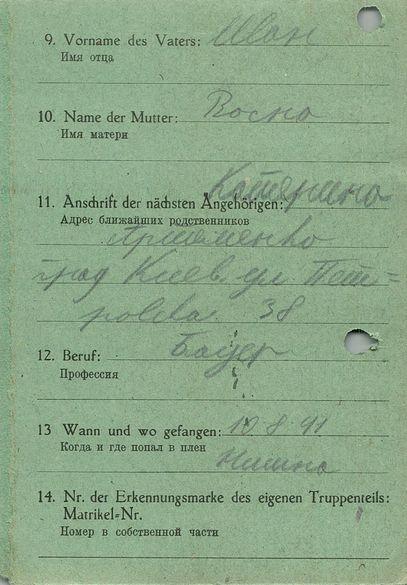 9. Vorname des Vaters: Иван
Имя отца
10. Name der Mutter:
Имя матери
Катерина
11. Anschrift der nächsten Angehörigen:
Адрес ближайших родственников
Артеменко
град Киев ул
38
12. Beruf: Бауер
Профессия
13 Wann und wo gefangen: 10.8.41
Когда и где попал в плен
14. Nr. der Erkennungsmarke des eigenen Truppenteils:
Matrikel=Nr.
Номер в собственной части